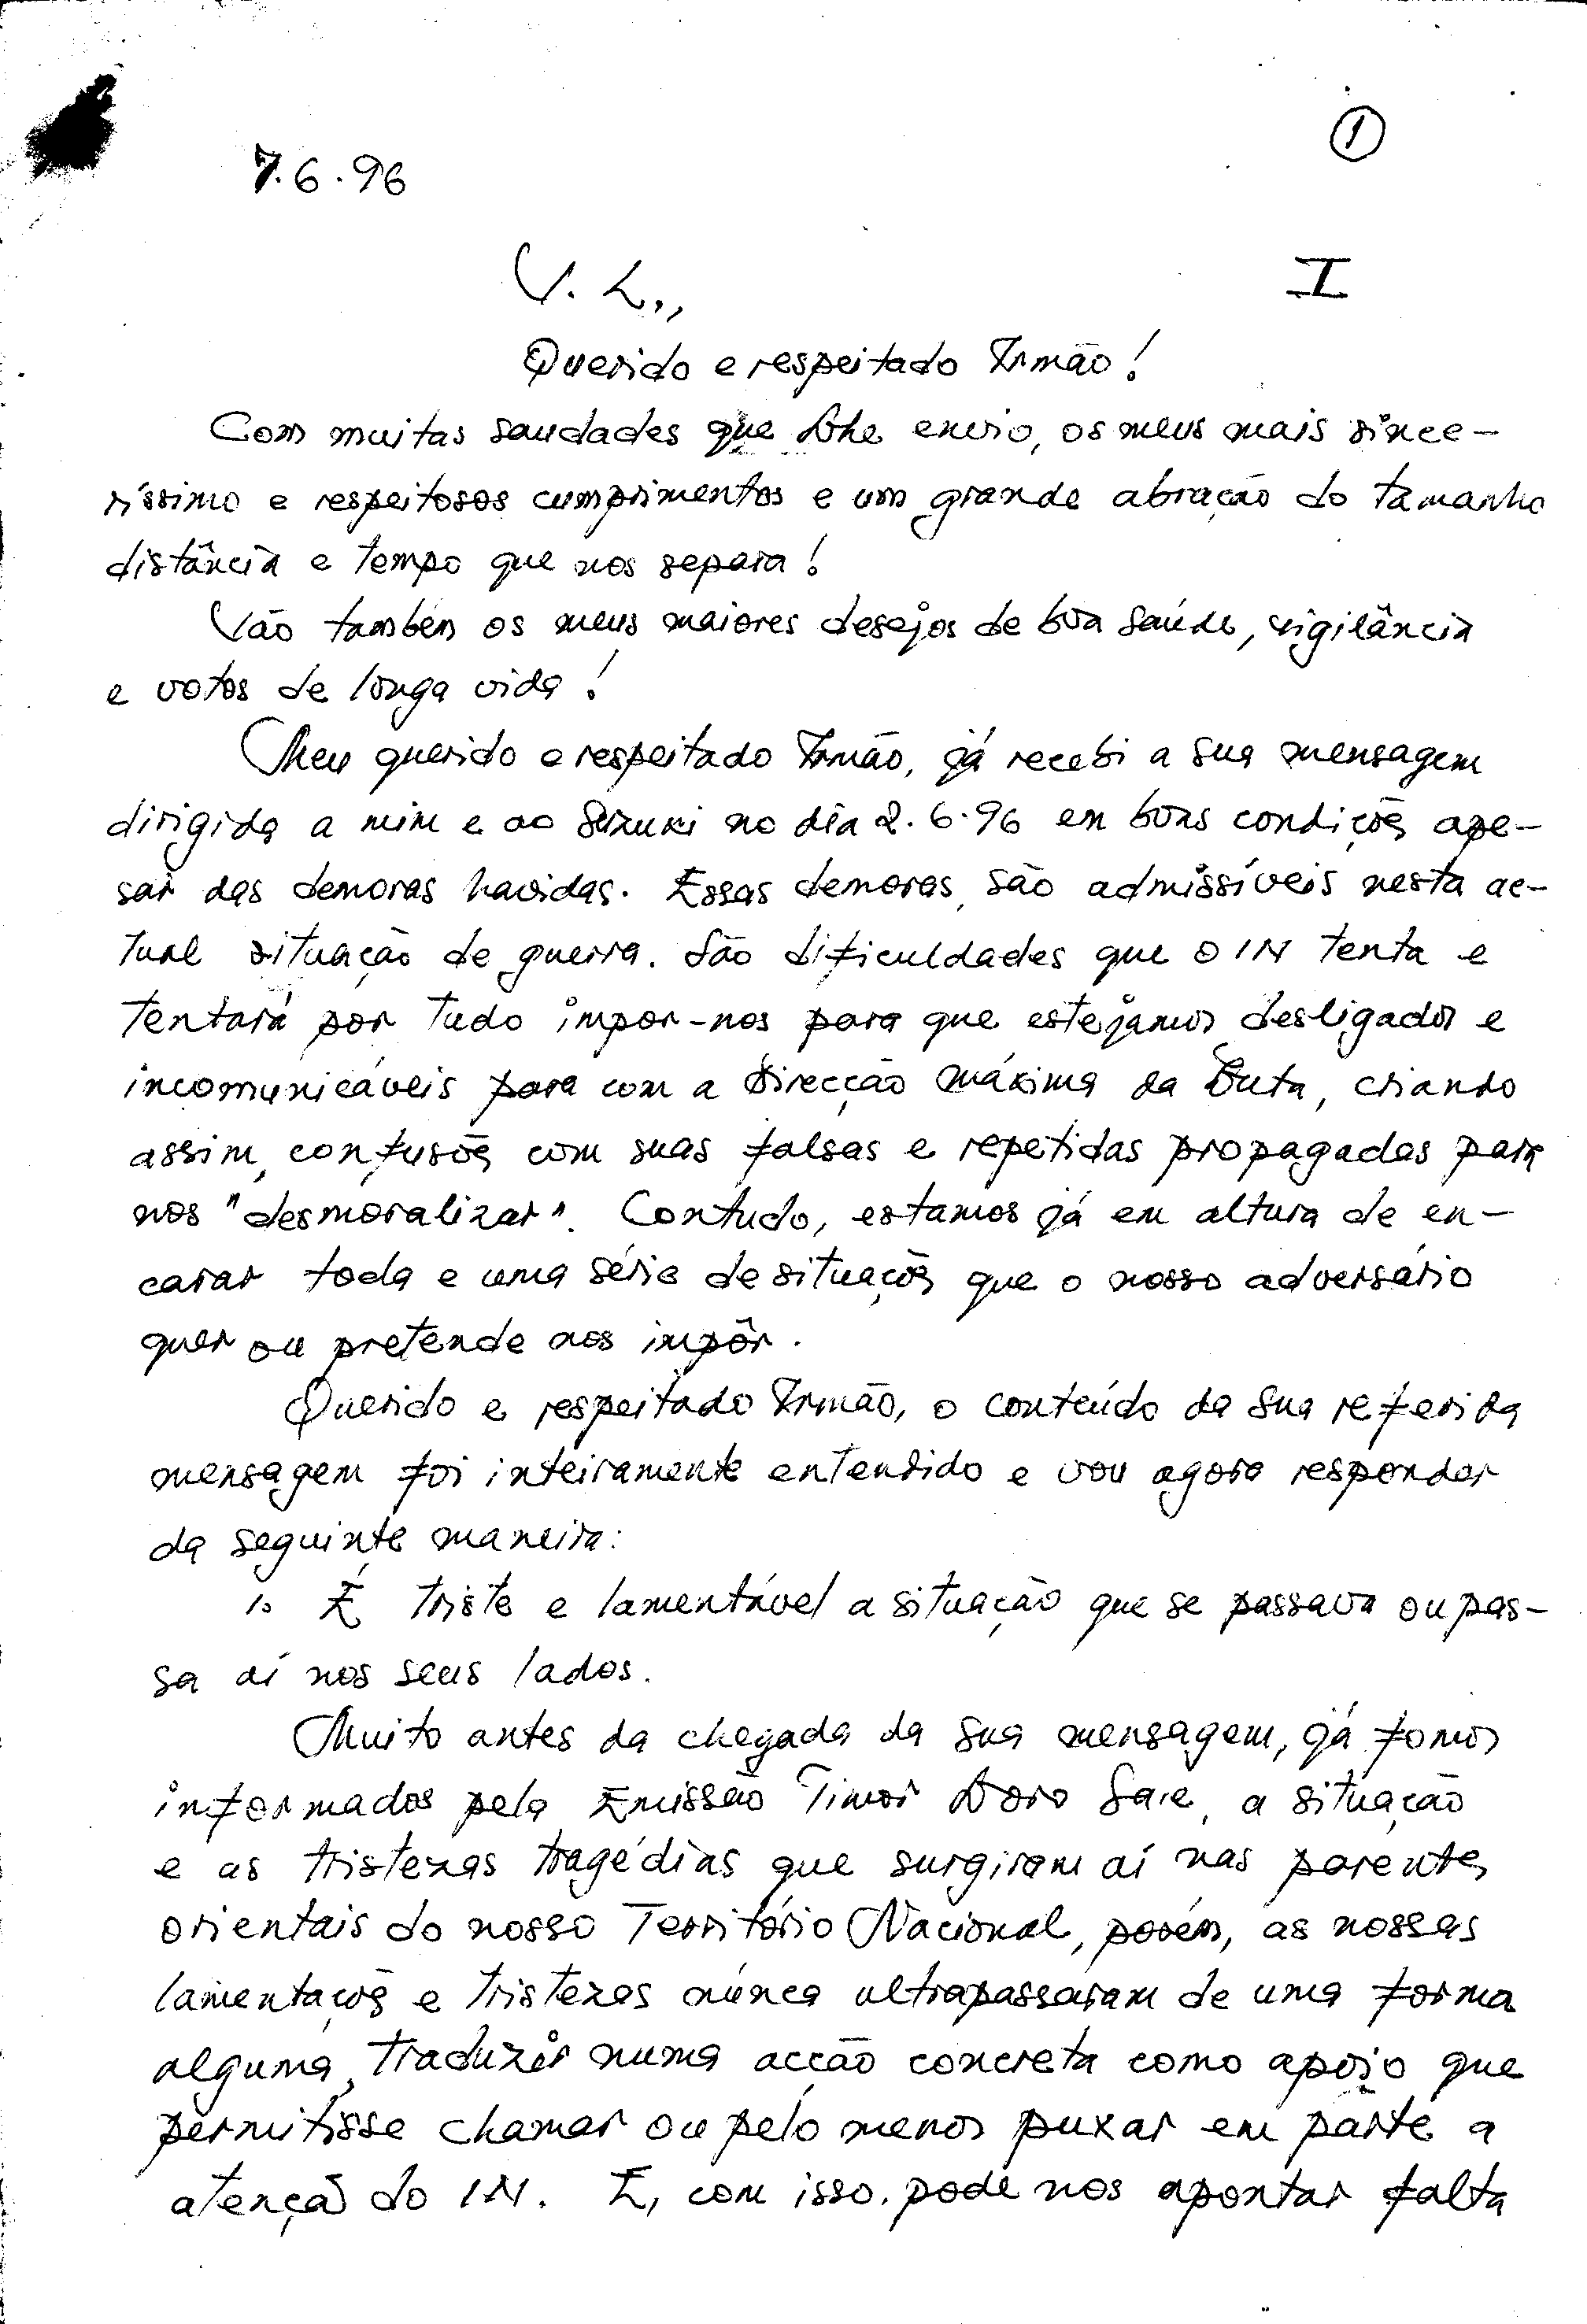 ①
7.6.96
V. L.,
I
Querido e respeitado Irmão!
Com muitas saudades que lhe envio, os meus mais since-
ríssimo e respeitosos cumprimentos e um grande abração do tamanho
distância e tempo que nos separa!
Vão também os meus maiores desejos de boa saúde, vigilância
e votos de longa vida!
Meu querido e respeitado Irmão, já recebi a sua mensagem
dirigida a mim e ao Suzuki no dia 2.6.96 em boas condições ape-
sar das demoras havidas. Essas demoras, são admissíveis nesta ac-
tual situação de guerra. São dificuldades que o IN tenta e
tentará por tudo impor-nos para que estejamos desligados e
incomunicáveis para com a Direcção máxima da Luta, criando
assim, confusões com suas falsas e repetidas propagadas para
nos "desmoralizar". Contudo, estamos já em altura de en-
carar toda e uma série de situações que o nosso adversário
quer ou pretende nos impôr.
Querido e respeitado Irmão, o conteúdo da sua referida
mensagem foi inteiramente entendido e vou agora responder
da seguinte maneira:
1. É triste e lamentável a situação que se passava ou pas-
sa aí nos seus lados.
Muito antes da chegada da sua mensagem, já fomos
informados pela Emissão Timor Loro Sae, a situação
e as tristezas tragédias que surgiram aí nas parentes
orientais do nosso Território Nacional, porém, as nossas
lamentações e tristezas núnca ultrapassaram de uma forma
alguma, traduzir numa acção concreta como apoio que
permitisse chamar ou pelo menos puxar em parte a
atenção do IN. E, com isso, pode nos apontar falta